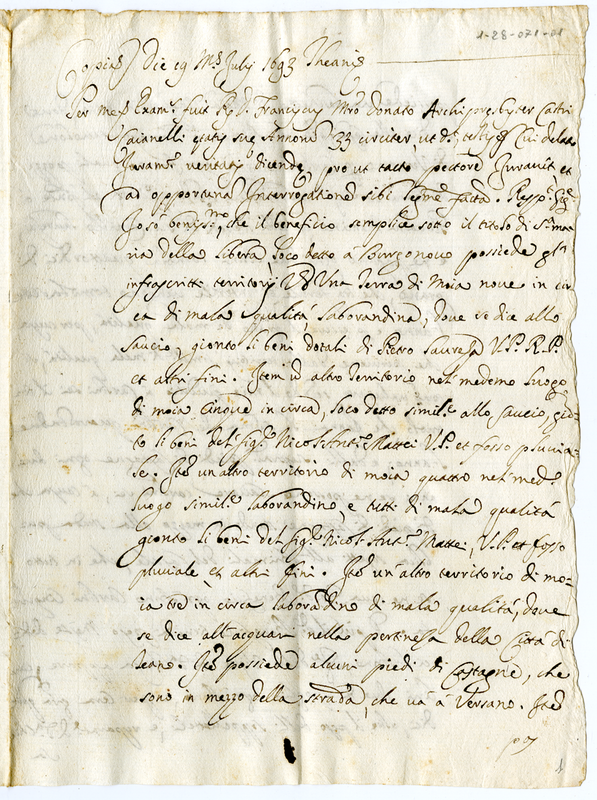 1-28-071-01
Copia Die 19 M.s July 1693 Theani
Per me Exam.s fuit R.D. Franciscus M.ro Donato Archipresbyter Castri
Caianelli etatis sue Annoru 33 circiter, ut d.s, testis Cui delato
Juram.to veritatis dicende, prout tacto pectore Juravit, et
ad opportuna Interrogatione sibi factà. Resp.t
benis.mo, che il beneficio semplice sotto il titolo di S.ta ma
ria della libera, loco detto à Burgonovo possiede gl'
infrascritti territorij Una Terra di Moia nove in cir
ca di mala qualità laborandina, dove se dice allo
saucio, gionto li beni dotali di Pietro V.P. R.P.
et altri fini. Item un altro Territorio nel medemo luogo
di moia cinque in circa, loco detto simil.e allo saucio, gio
to li beni del sig.r Nicol'Ant.o Mattei V.P. et fosso pluvia
le. Ite un altro territorio di moia quattro nel med.o
luogo simil.e laborandino, e tutti di mala qualità
gionto li beni del sig.r Nicol'Ant.o Mattei, V.P. et fosso
pluviale et altri fini. Ite un'altro territorio di mo
ia tre in circa laborandino di mala qualità, dove
se dice all'acquar nella pertinesa della Città di
Teano. Ite possiede alcuni piedi di Castagne, che
sono in mezzo della strada, che và à Versano. Ite
pos
1